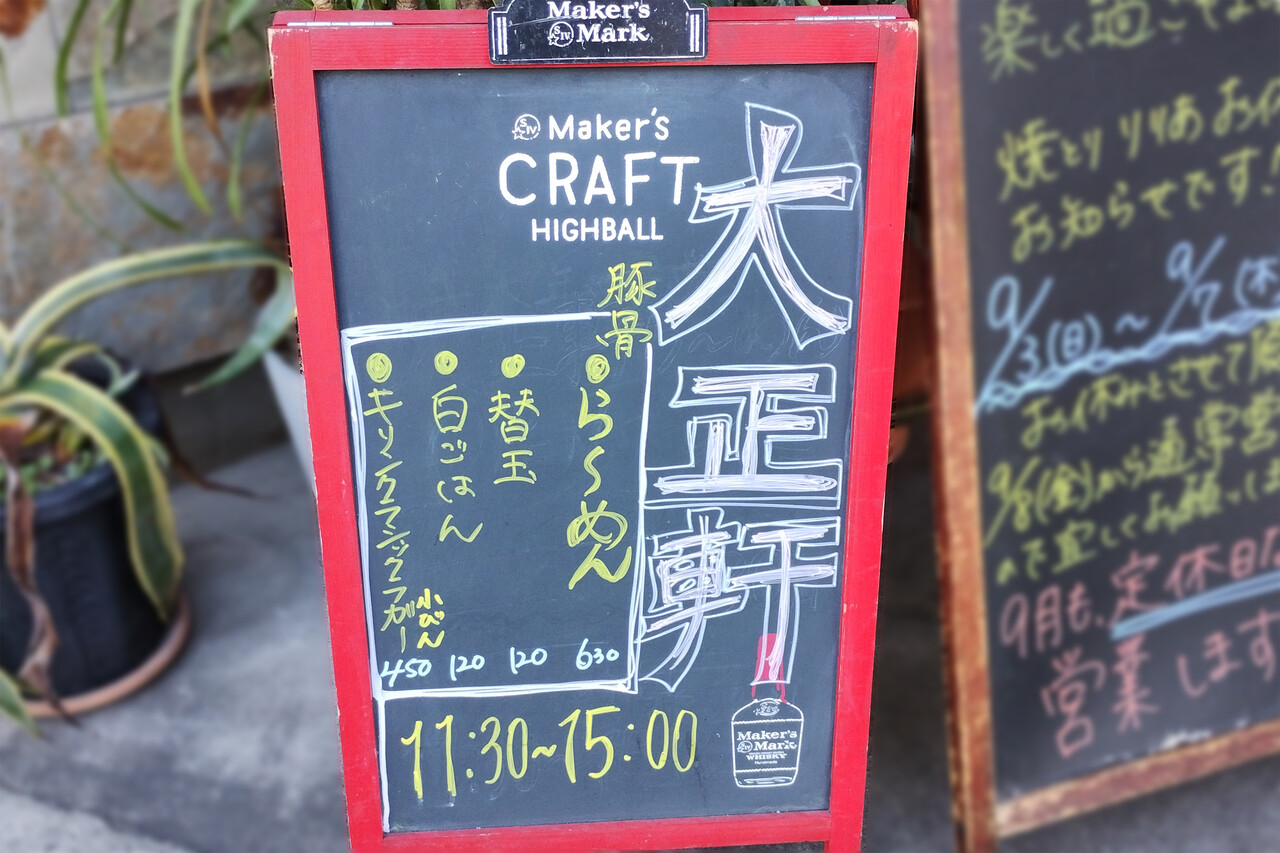 Maker's
Mark
Maker's
CRAFT
HIGHBALL
大正軒
豚骨
ら〜めん
630
替玉
120
白ごはん
120
キリンクラシックラガー
小びん
450
11:30~15:00
Maker's
Mark
WHISKY
楽しく過ご
焼とり りりあ お
お知らせです!
9/3(日)~9/7(木
お休みとさせて
9/8(金)から通常営
ので宜しくお願い
9月も、定休日
営業します